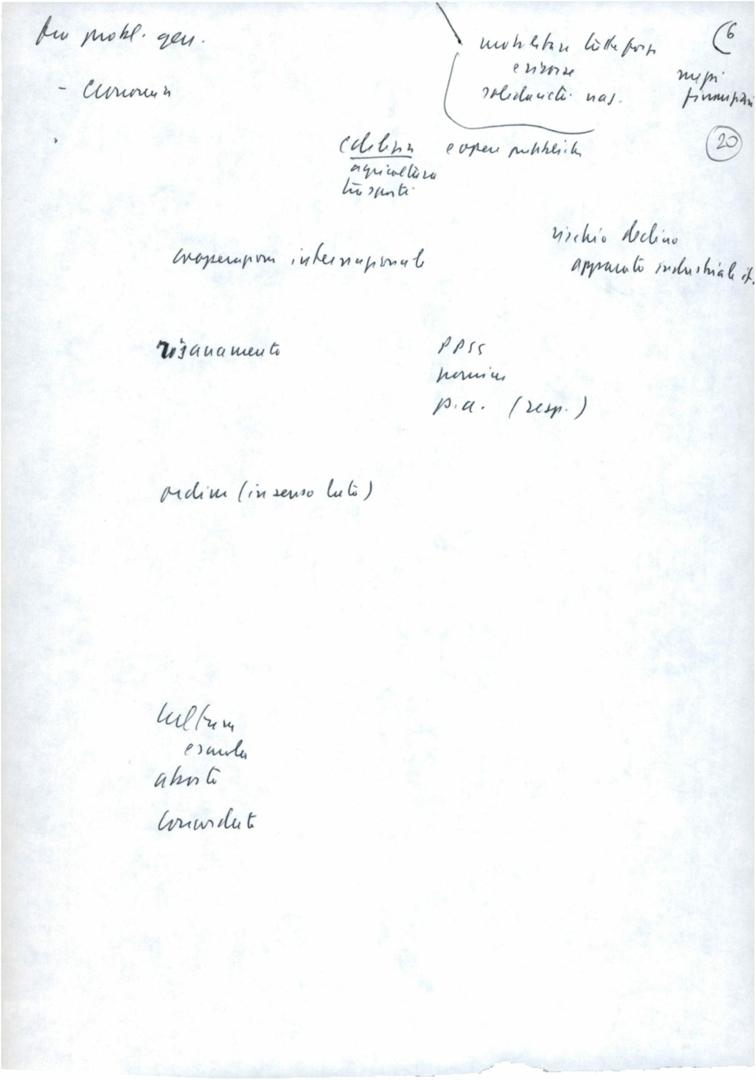 probl. gen.
(6
mobilitare tutte forze
e risorse
solidarietà naz.
mezzi
finanziari
- Economia
20
edilizia e opere pubbliche
agricoltura
trasporti
rischio declino
apparato industriale it.
cooperazione internazionale
risanamento
PPSS
nomine
p.a. (resp.)
ordine (in senso lato)
cultura
e scuola
aborto
Concordato